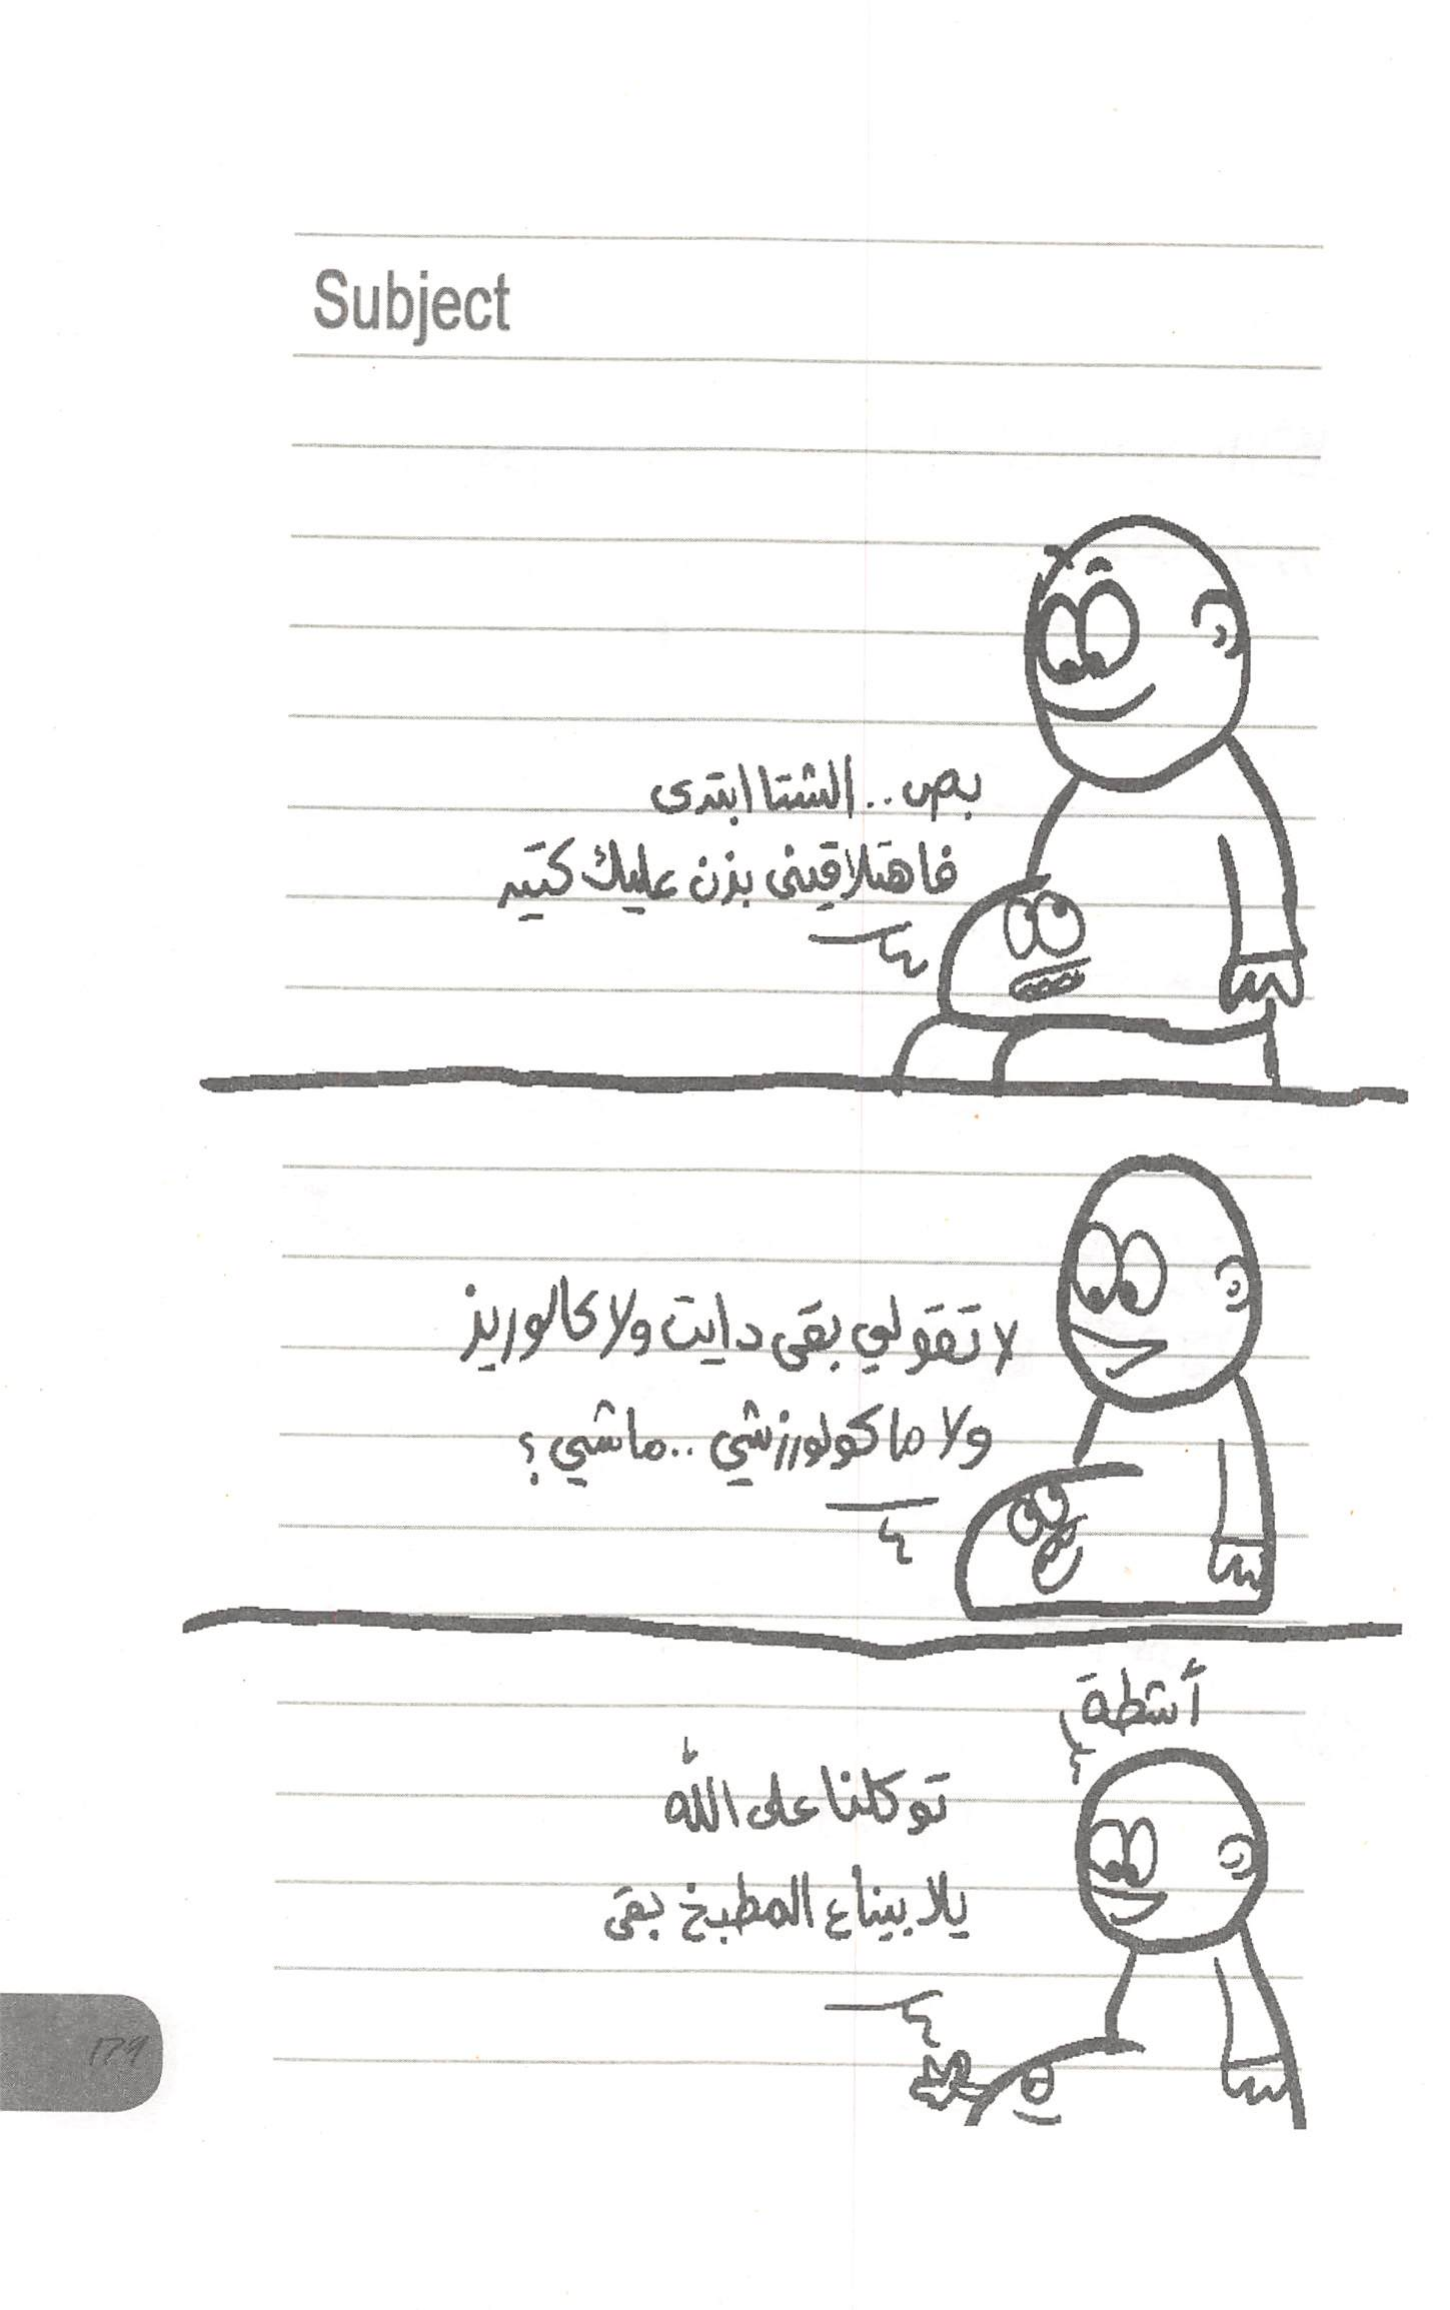 Subject
بص .. الشتا ابتدى
فاهتلاقينى بزن عليك كتير
لا تقولي بقى دايت ولا كالوريز
ولا ماكولورزشي .. ماشي ؟
أشطة
توكلنا على الله
يلا بيناع المطبخ بقى
179